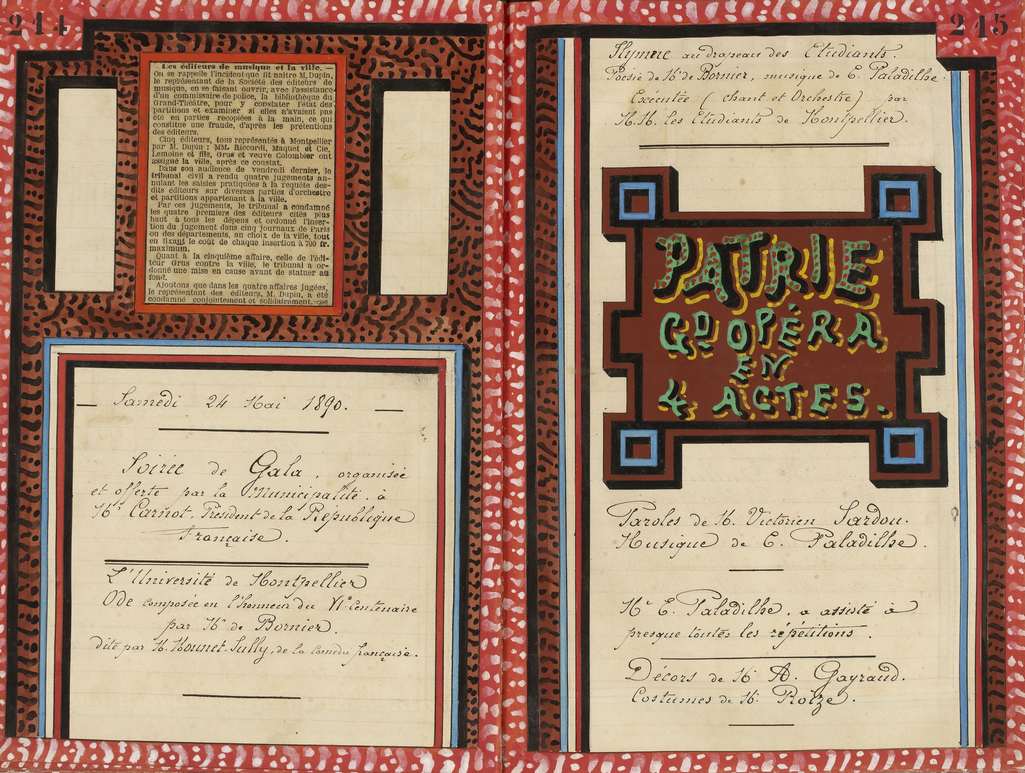 214
Les éditeurs de musique et la ville. —
On se rappelle l'incident que fit naître M. Dupin,
le représentant de la Société des éditeurs de
musique, en se faisant ouvrir, avec l'assistance
d'un commissaire de police, la bibliothèque du
Grand-Théâtre, pour y constater l'état des
partitions et examiner si elles n'avaient pas
été en parties recopiées à la main, ce qui
constitue une fraude, d'après les prétentions
des éditeurs.
Cinq éditeurs, tous représentés à Montpellier
par M. Dupin : MM. Riccordi, Maquet et Cie,
Lemoine et fils, Grus et veuve Colombier ont
assigné la ville, après ce constat.
Dans son audience de vendredi dernier, le
tribunal civil a rendu quatre jugements an-
nulant les saisies pratiquées à la requête des-
dits éditeurs sur diverses parties d'orchestre
et partitions appartenant à la ville.
Par ces jugements, le tribunal a condamné
les quatre premiers des éditeurs cités plus
haut à tous les dépens et ordonné l'inser-
tion du jugement dans cinq journaux de Paris
ou des départements, au choix de la ville, tout
en fixant le coût de chaque insertion à 700 fr.
maximum.
Quant à la cinquième affaire, celle de l'édi-
teur Grus contre la ville, le tribunal a or-
donné une mise en cause avant de statuer au
fond.
Ajoutons que dans les quatre affaires jugées,
le représentant des éditeurs, M. Dupin, a été
condamné conjointement et solidairement.
Samedi 24 Mai 1890.
Soirée de Gala, organisée
et offerte par la Municipalité à
Mr Carnot, Président de la République
Française.
L'Université de Montpellier
Ode composée en l'honneur du VIe Centenaire
par Mr de Bornier.
dite par M. Mounet-Sully, de la comédie française.
215
Hymne au drapeau des Etudiants.
Poésie de Mr de Bornier, musique de E. Paladilhe.
Exécutée (chant et Orchestre) par
M.M. les Etudiants de Montpellier.
PATRIE
GD OPÉRA
EN
4 ACTES.
Paroles de M. Victorien Sardou.
Musique de E. Paladilhe.
Mr E. Paladilhe, a assisté à
presque toutes les répétitions.
Décors de Mr A. Gayraud.
Costumes de Mr Roize.